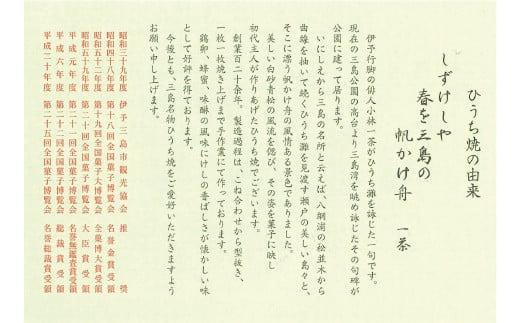 ひうち焼の由来
しずけしや
春を三島の
帆かけ舟
一茶
伊予行脚の俳人小林一茶がひうち灘を詠じた一句です。
現在の三島公園の高台より三島湾を眺め詠じたその句碑が
公園に建って居ります。
いにしえから三島の名所と云えば、八綱浦の松並木から
曲線を描いて続くひうち灘を見渡す瀬戸の美しい島々と、
そこに漂う帆かけ舟の風情ある景色でありました。
美しい白砂青松の風流を偲び、その姿を菓子に映し
初代主人が作りあげたひうち焼でございます。
創業百二十余年。製造過程は、こね合わせから型抜き、
一枚一枚焼き上げまで手作業にて作っております。
鶏卵、蜂蜜、味醂の風味にけしの香ばしさが懐かしい味
として好評を得ております。
今後とも、三島名物ひうち焼をご愛好いただきますよう
お願い申し上げます。
昭和三十九年度 伊予三島市観光協会 推奨
昭和四十三年度 第十八回全国菓子博覧会 名誉金賞受領
昭和五十二年度 第十九回全国菓子大博覧会 全菓博大賞受領
昭和五十九年度 第二十回全国菓子博覧会 大臣賞受領
平成元年度 第二十一回全国菓子博覧会 名誉無鑑査賞受領
平成六年度 第二十二回全国菓子博覧会 総裁賞受領
平成二十年度 第二十五回全国菓子博覧会 名誉総裁賞受領